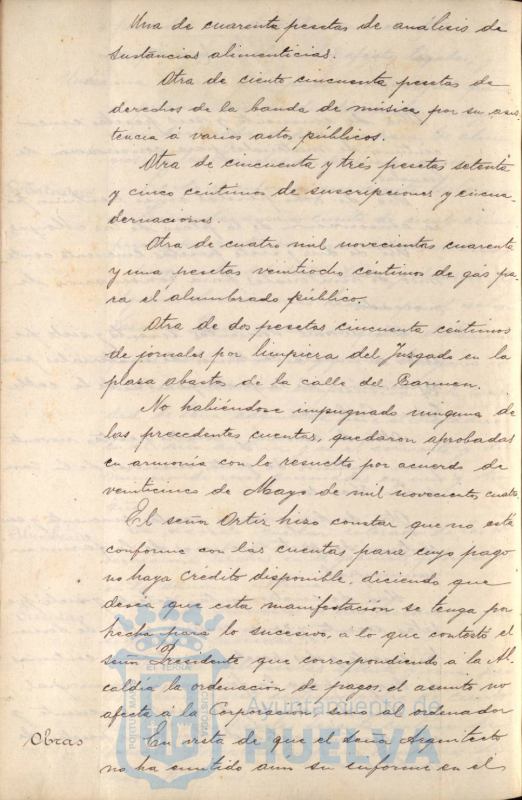 Una de cuarenta pesetas de análisis de
sustancias alimenticias.
Otra de ciento cincuenta pesetas de
derechos de la banda de música por su asis-
tencia á varios actos públicos.
Otra de cincuenta y trés pesetas setenta
y cinco centimos de suscripciones y encua-
dernaciones.
Otra de cuatro mil novecientas cuarenta
y una pesetas veintiocho céntimos de gas pa-
ra el alumbrado público.
Otra de dos pesetas cincuenta céntimos
de jornales por limpieza del Juzgado en la
plaza abastos de la calle del Carmen.
No habiéndose impugnado ninguna de
las precedentes cuentas, quedaron aprobadas
en armonía con lo resuelto por acuerdo de
veinticinco de Mayo de mil novecientos cuatro.
El señor Ortiz hizo constar que no está
conforme con las cuentas para cuyo pago
no haya crédito disponible, diciendo que
desea que esta manifestación se tenga por
hecha para lo sucesivo, á lo que contestó el
señor Presidente que correspondiendo á la Al-
caldía la ordenación de pagos, el asunto no
afecta á la Corporación sino al ordenador
Obras En vista de que el Arquitecto
no ha emitido aun su informe en el
Ayuntamiento de
HUELVA